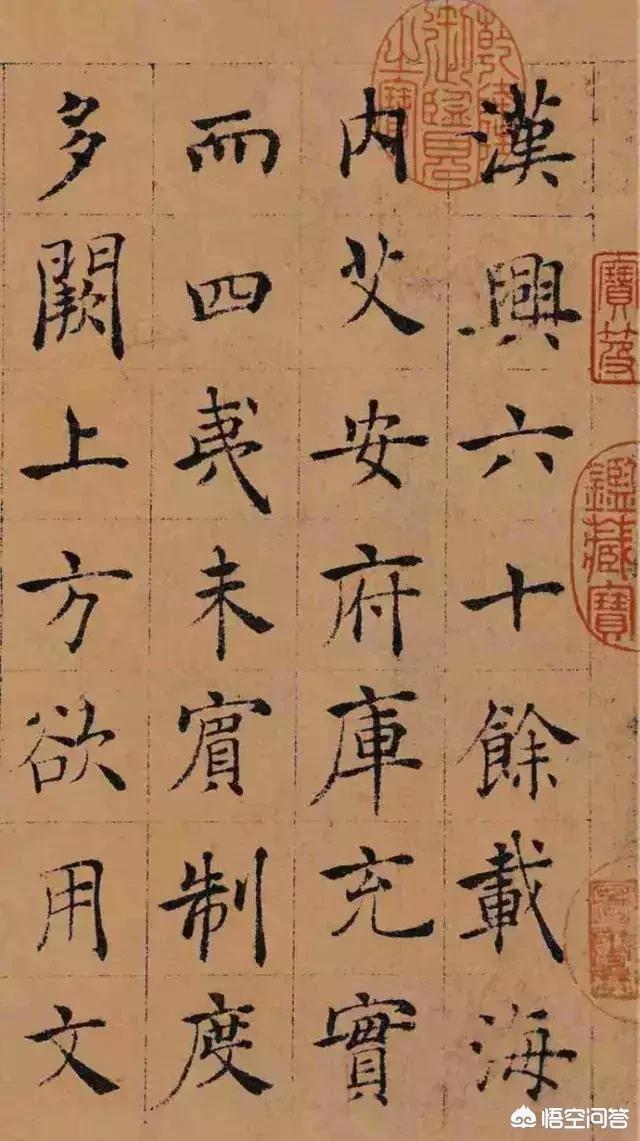 漢興六十餘載海
内艾安府庫充實
而四夷未賓制度
多闕上方欲用文
乾隆御覽之寶
寶笈
鑑藏寶
悟空问答